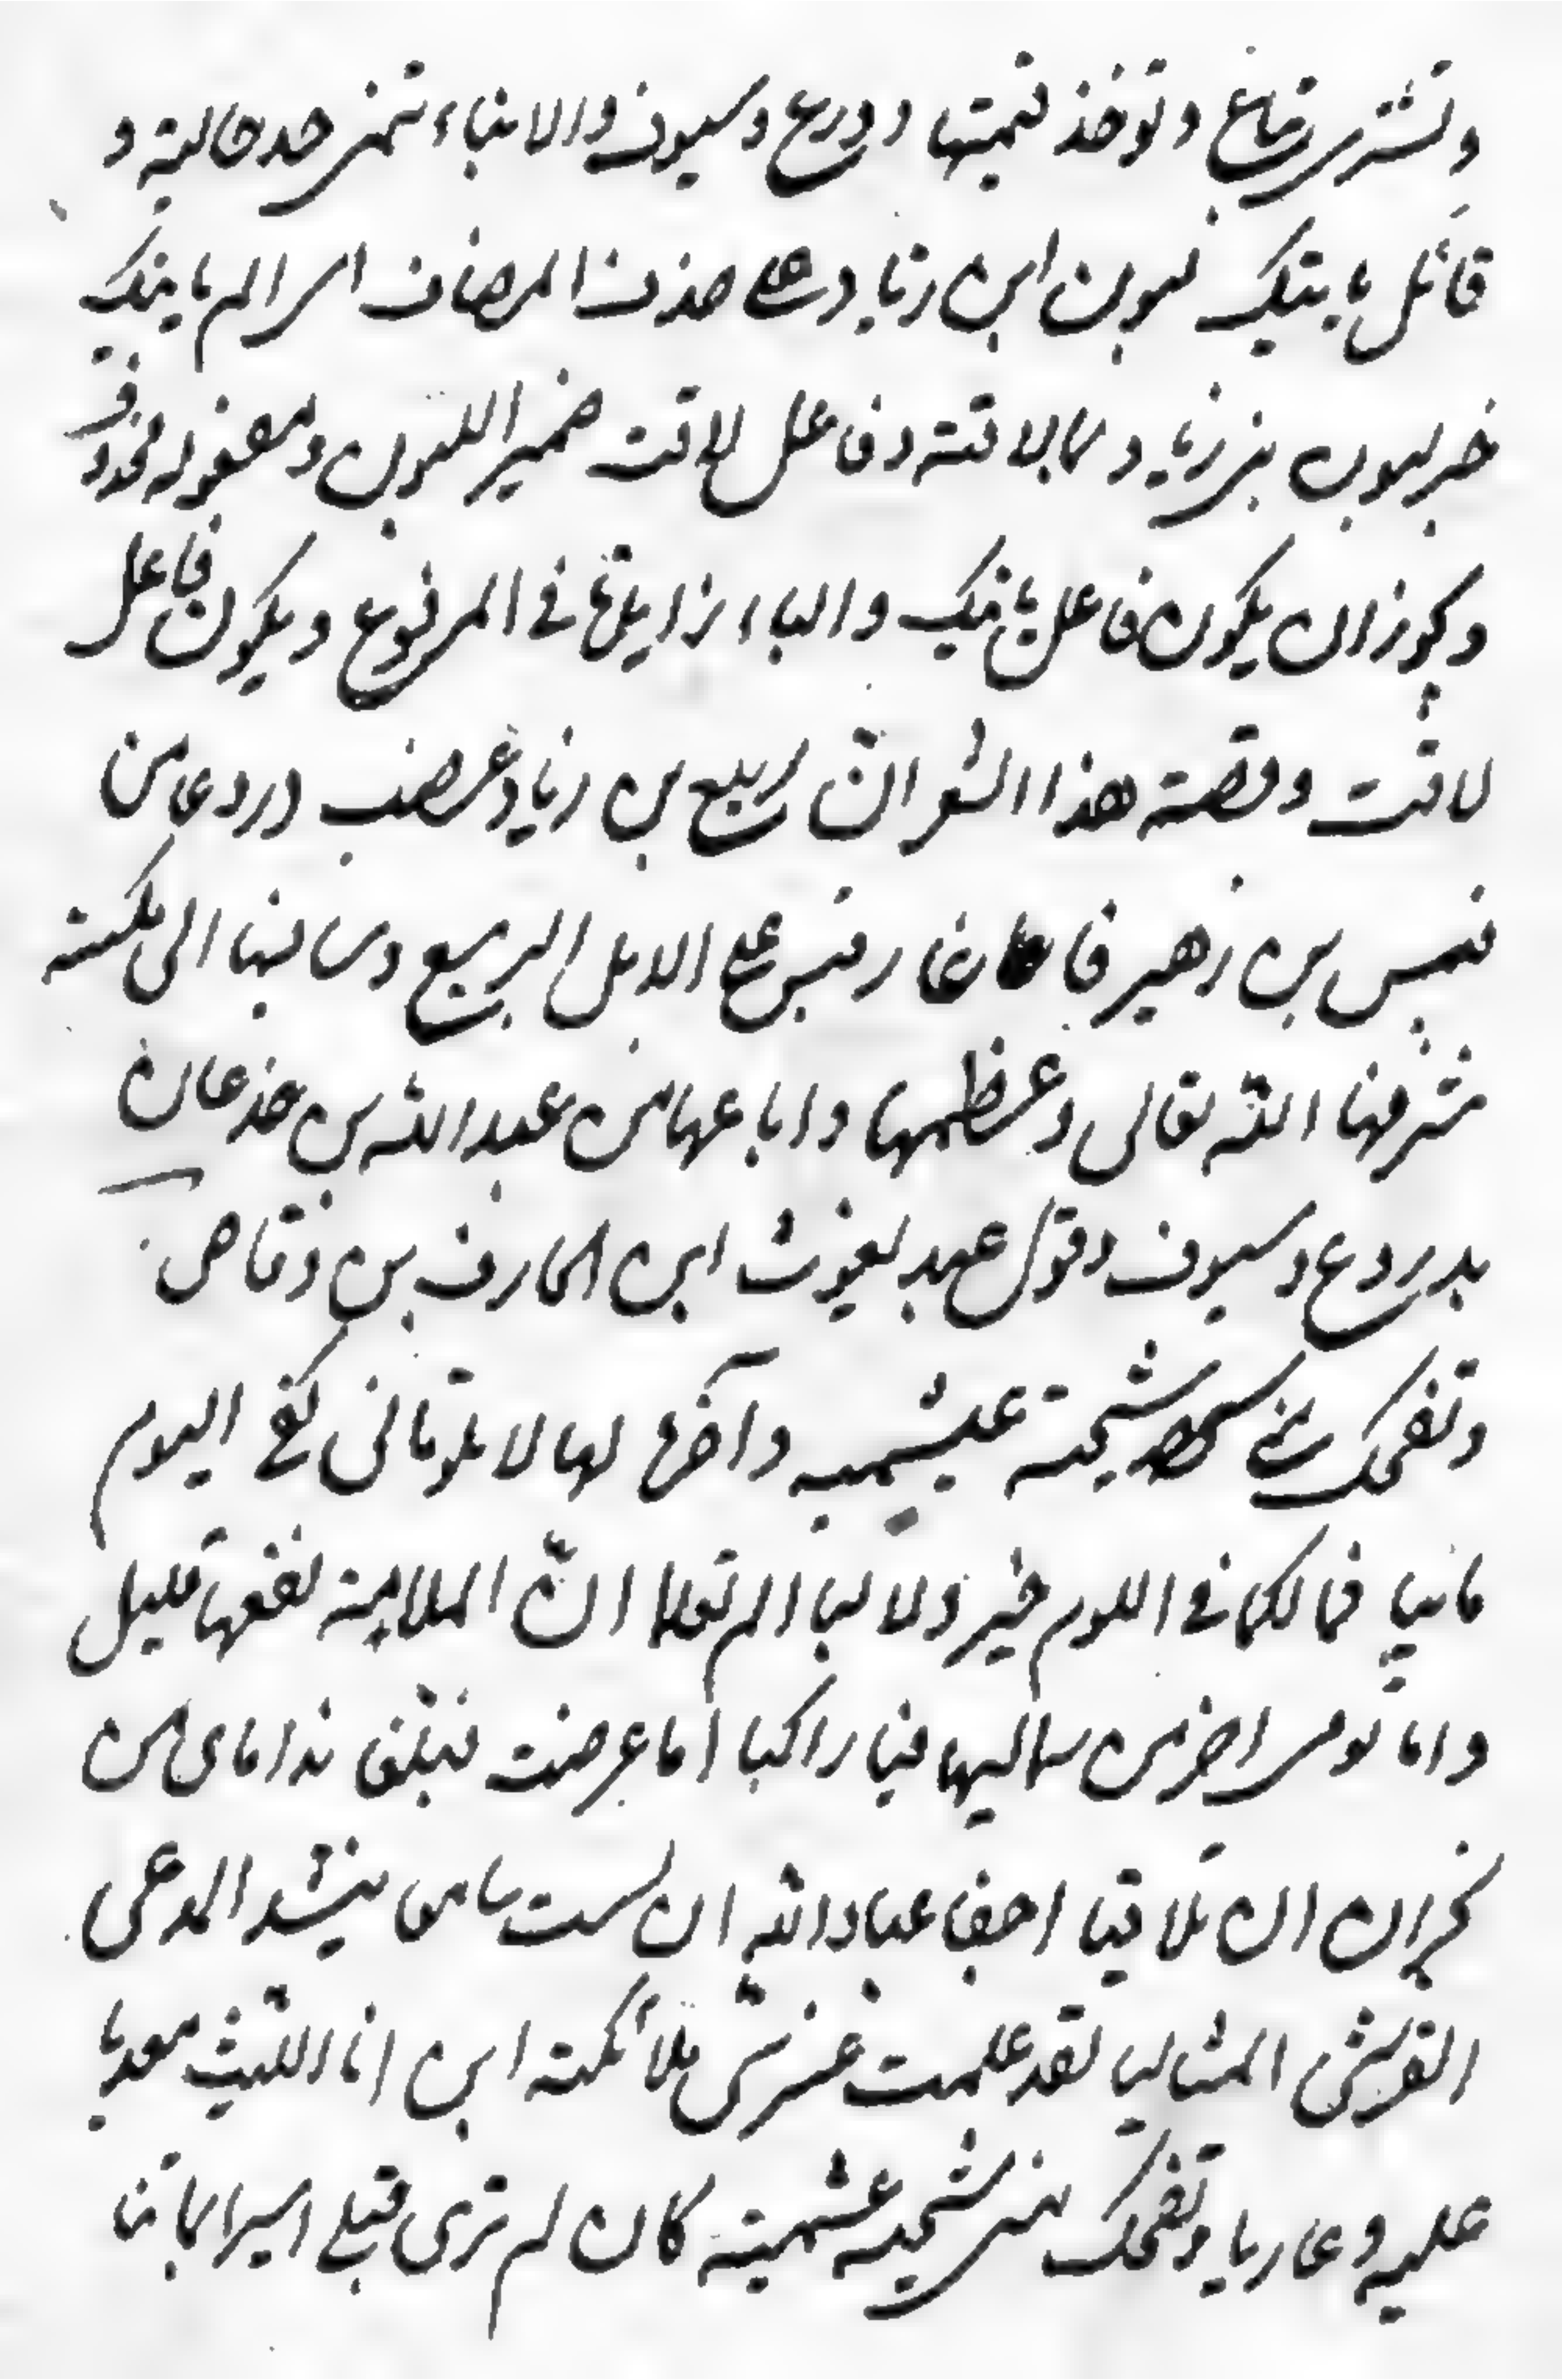 وتشترى رقاع وتوخذ قيمتها دورع وسيوف والانباء تنمى حد حالية و
قائل ياتيك لبون ابن زياد على حذف المضاف اى الم ياتيك
خبر لبون بنى زياد وما لاقته وفاعل لاقت ضمير اللبون ومفعوله محذوف
ويجوز ان يكون فاعل ياتيك والباء زايدة فى المرفوع ويكون فاعل
لاقت وقصة هذا الشعر انّ ربيع بن زياد غصب دردعا من
قيس بن زهير فاغار قيس على الابل الربيع وساقها الى مكة
شرفها الله تعالى وعظمها واباعها من عبد الله بن جذعان
بدروع وسيوف وقول عبد يغوث ابن الحارف بن وقاص
وتضحك منى شيخة عبشميه وآخرها لها لا تلومانى كفى اليوم
مابيا فما لكما فى اللوم خير ولا ليا الم تعلما انّ الملامة نفعها قليل
واما لومى اخى من شماليها فيا راكبا اما عرضت فبلغن ندا ماى من
نجران ان تلاقيا احقا عباد الله ان لست سامعا ينشد المدعى
القريش المثاليا لقد علمت عزسى ملائكة ابن انا الليث معديا
عليه وعاريا وتضحك منى شيخه عبشمية كان لم ترى قبلى اسيرا يمانيا